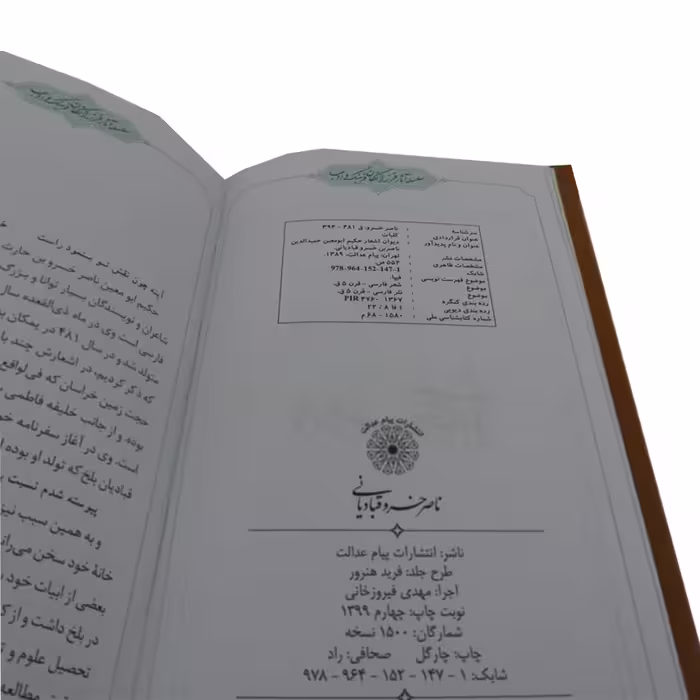 سرشناسه : ناصر خسرو، ۳۹۴ - ۴۸۱ ق
عنوان قراردادی : کلیات
عنوان و نام پدیدآور : دیوان اشعار حکیم ابومعین حمیدالدین
ناصربن خسرو قبادیانی.
مشخصات نشر : تهران: پیام عدالت، ۱۳۸۹.
مشخصات ظاهری : ۵۵۲ ص.
شابک : 978-964-152-147-1
موضوع فهرست نویسی : فیپا.
موضوع : شعر فارسی - قرن ۵ ق.
موضوع : نثر فارسی - قرن ۵ ق.
رده بندی کنگره : PIR ۴۷۶۰ ۱۳۶۷
رده بندی دیویی : ۱ فا ۸ / ۲۲
شماره کتابشناسی ملی : ۱۵۸۰ - ۶۸ م
انتشارات پیام عدالت
ناصر خسرو قبادیانی
ناشر: انتشارات پیام عدالت
طرح جلد: فرید هنرور
اجرا: مهدی فیروزخانی
نوبت چاپ: چهارم ۱۳۹۹
شمارگان: ۱۵۰۰ نسخه
چاپ: چارگل صحافی: راد
شابک: ۱ - ۱۴۷ - ۱۵۲ - ۹۶۴ - ۹۷۸
آینه چون نقش تو بنمود راست
حکیم ابو معین ناصر خسرو بن حارث
شاعران و نویسندگان بسیار توانا و بزرگ
فارسی است وی در ماه ذی‌القعده سال
متولد شد و در سال ۴۸۱ در یمکان به
که ذکر کردیم، در اشعارش چند با
حجت زمین خراسان که فی‌لواقع
بوده، و از جانب خلیفه فاطمی
است. وی در آغاز سفرنامه خو
قبادیان بلخ که تولد او بوده
پیوسته شدم نسبت
و به همین سبب نیز
خانهٔ خود سخن می‌راند
بعضی از ابیات خود
در بلخ داشت و از
تحصیل علوم و
مطالعه